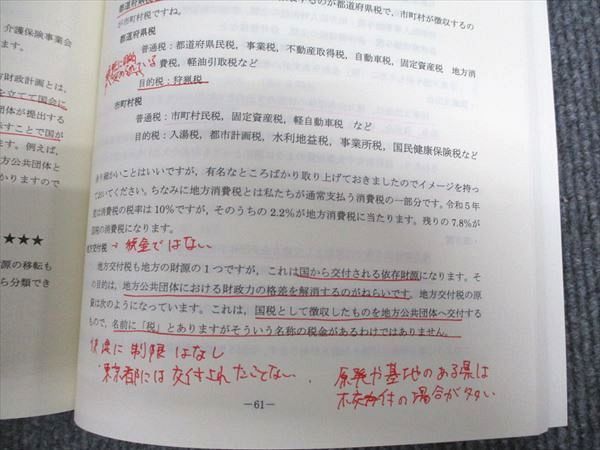 都道府県税
が市町村税ですね。
都道府県税
普通税：都道府県民税，事業税，不動産取得税，自動車税，固定資産税 地方消
費税，軽油引取税など
目的税：狩猟税
市町村税
普通税：市町村民税，固定資産税，軽自動車税 など
目的税：入湯税，都市計画税，水利地益税，事業所税，国民健康保険税など
細かいことはいいですが，有名なところばかり取り上げておきましたのでイメージを持っ
ておいてください。ちなみに地方消費税とは私たちが通常支払う消費税の一部分です。令和5年
消費の税率は10％ですが，そのうちの2.2％が地方消費税に当たります。残りの7.8％が
国税の消費税になります。
地方交付税 → 税金ではない
地方交付税も地方の財源の1つですが，これは国から交付される依存財源になります。そ
の目的は，地方公共団体における財政力の格差を解消するのがねらいです。地方交付税の原
資は次のようになっています。これは，国税として徴収したものを地方公共団体へ交付する
もので，名前に「税」とありますがそういう名称の税金があるわけではありません。
使途に制限はなし
・東京都には交付されたことない。
原発や基地のある県は
不交付の場合が多い
—61—
介護保険事業会
ます。
方財政計画とは，
を立てて国会に
団体が提出する
示すことで国が
ます。例えば，
方公共団体と
かりますので
★★★
源の移転も
ら分類でき